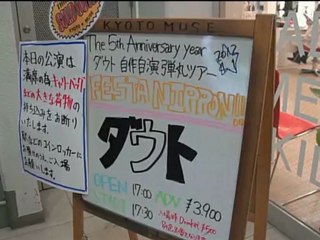 KYOTO MUSE
The 5th Anniversary year
ダウト 自作自演弾丸ツアー
FESTA NIPPON!!
ダウト
OPEN 17:00 ADV ¥3,900
START 17:30
Drink ¥500
本日の公演は
満席の為 キャリーバッグ
などの大きな荷物の
持ち込みをお断り
いたします。
駅などのコインロッカーに
ご入場
お願いします。